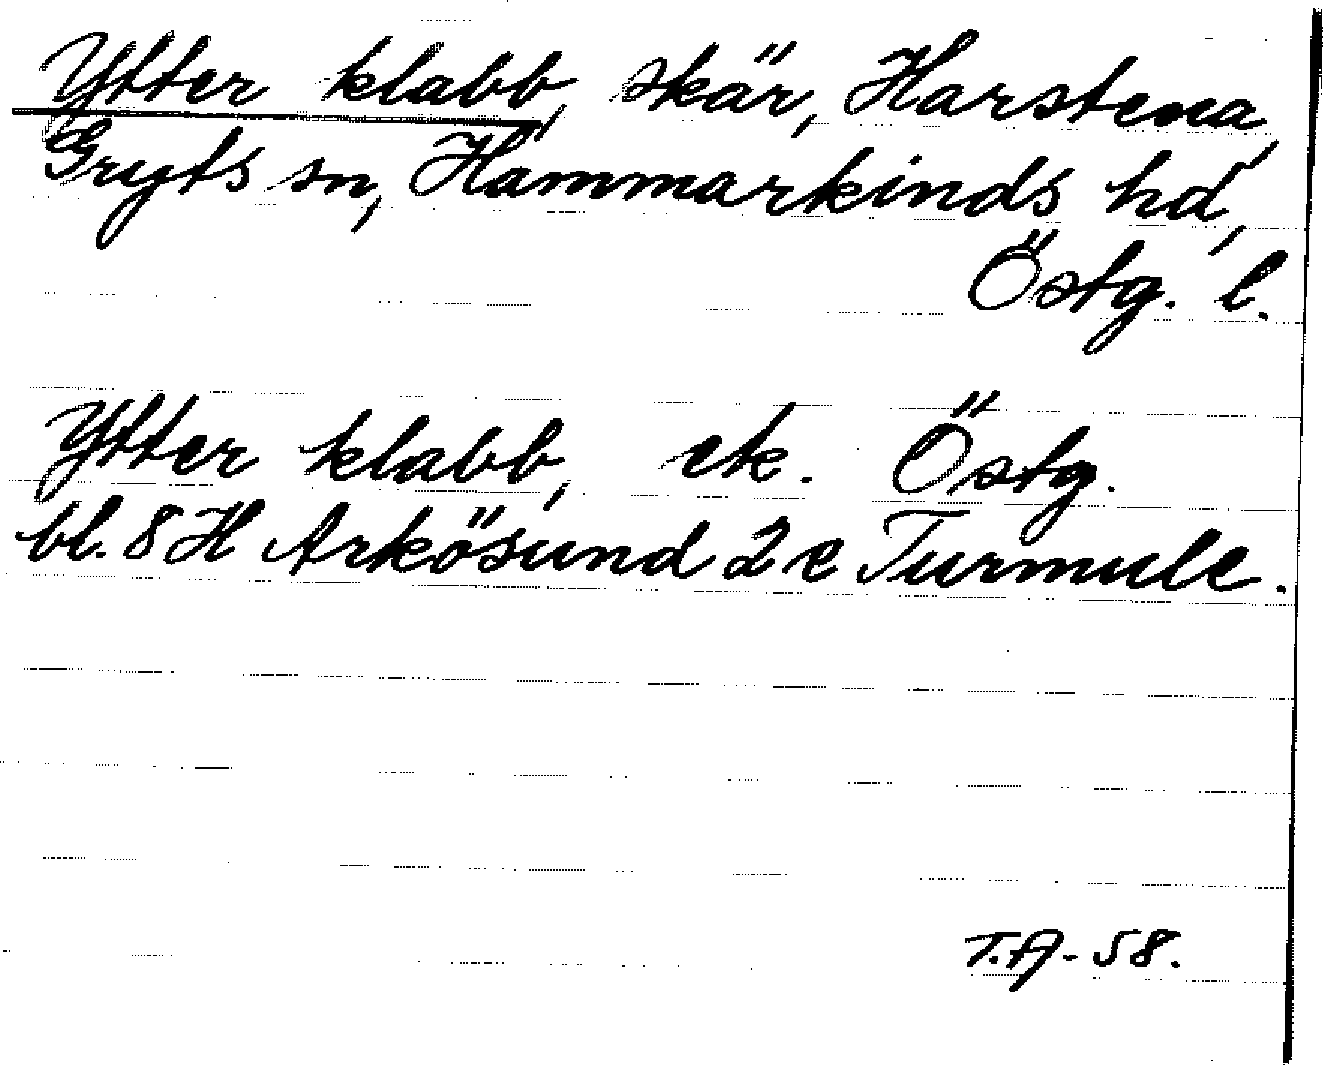 Ytter klabb, skär, Harstena,
Gryts sn, Hammarkinds hd,
Östg. l.
Ytter klabb, ek. Östg.
bl. 8 H Arkösund 2 e Turmule.
T.A-58.